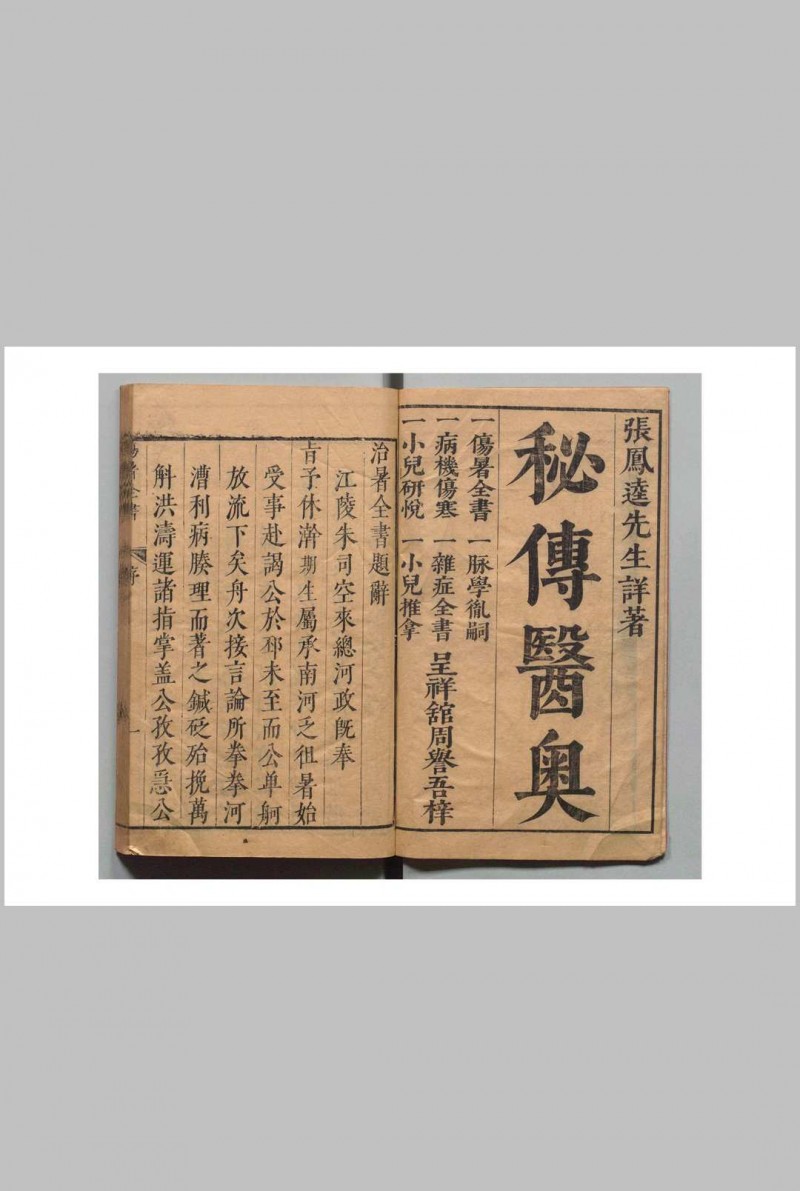 張鳳逵先生詳著
秘傳醫奧
一傷暑全書 一脉學胤嗣
一病機傷寒 一雜症全書 呈祥舘周譽吾梓
一小兒研悅 一小兒推拿
治暑全書題辭
江陵朱司空來總河政旣奉
旨予休澣期生屬承南河乏徂暑始
受事赴謁公於邳未至而公单舸
放流下矣舟次接言論所拳拳河
漕利病腠理而著之鍼砭殆挽萬
斛洪濤運諸指掌盖公孜孜爲公
傷暑全書 序 一